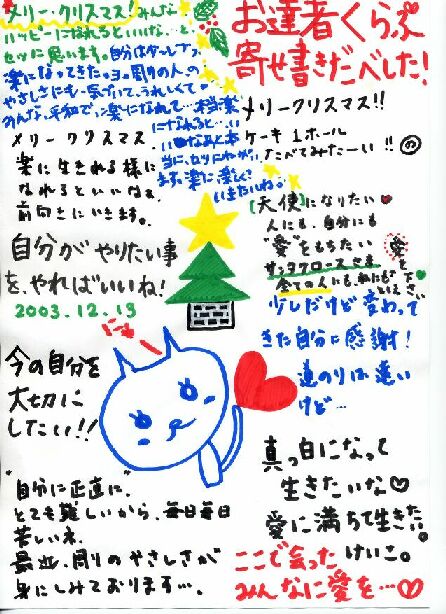 お達者くらぶ
寄せ書きだべした!
メリークリスマス!みんな
ハッピーになれるといいな、と
セツに思います。自分はダーレブ
楽になってきた。ヨ。周りの人の
やさしさにも気づいて、うれしくて
みんな、平和で楽になれて…本当楽
になれると…い
いなぁと本
当に、セツにねがい
ます。楽に楽しく
いきたいね。
メリークリスマス!!
ケーキ1ホール
たべてみたーい!!
メリークリスマス
楽に生きれる様に
なれるといいなぁ
前向きにいきます。
自分がやりたい事
を、やればいいね!
2003.12.13
(天使)になりたい
人にも、自分にも
"愛"をもちたい
サンタクロースさま
全ての人にも、私にも
愛を下さい
少しだけど変わって
きた自分に感謝!
道のりは遠い
けど…
今の自分を
大切に
したい!!
真っ白になって
生きたいな♡
愛に満ちて生きたい。
けいこ。
"自分に正直に"
とても難しいから、毎日毎日
苦しいネ。
最近、周りのやさしさが
身にしみております…。
ここで会った
みんなに愛を…♡